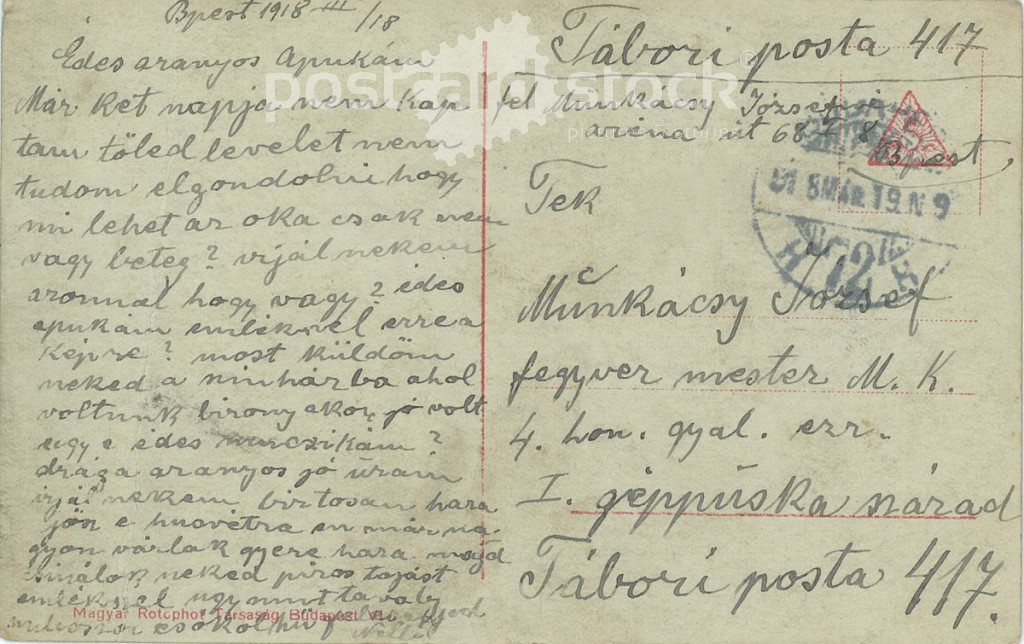 Bpest 1918 III/18
Édes aranyos Apukám
Már két napja nem kap
tam töled levelet nem
tudom elgondolni hogy
mi lehet az oka csak nem
vagy beteg? irjál nekem
azonnal hogy vagy? édes
apukám emlékszel erre a
képre? most küldöm
neked a szinházba ahol
voltunk bizony akor jó volt
ugy e édes
drága aranyos jó uram
irjál nekem biztosan haza
jön e husvétra én már na
gyon várlak gyere haza majd
csinálok neked piros tojást
emlékszel ugy mint tavaly
csókol hű
postcard stock
Tábori posta 417
fel Munkácsy Józsefné
aréna út 68
Bpest.
Tek
918 MÁR 19 N 9
72
Munkácsy József
fegyver mester M. K.
4. hon. gyal. ezr.
I. géppúska század
Tábori posta 417.
Magyar Rotophot Társaság, Budapest VI.